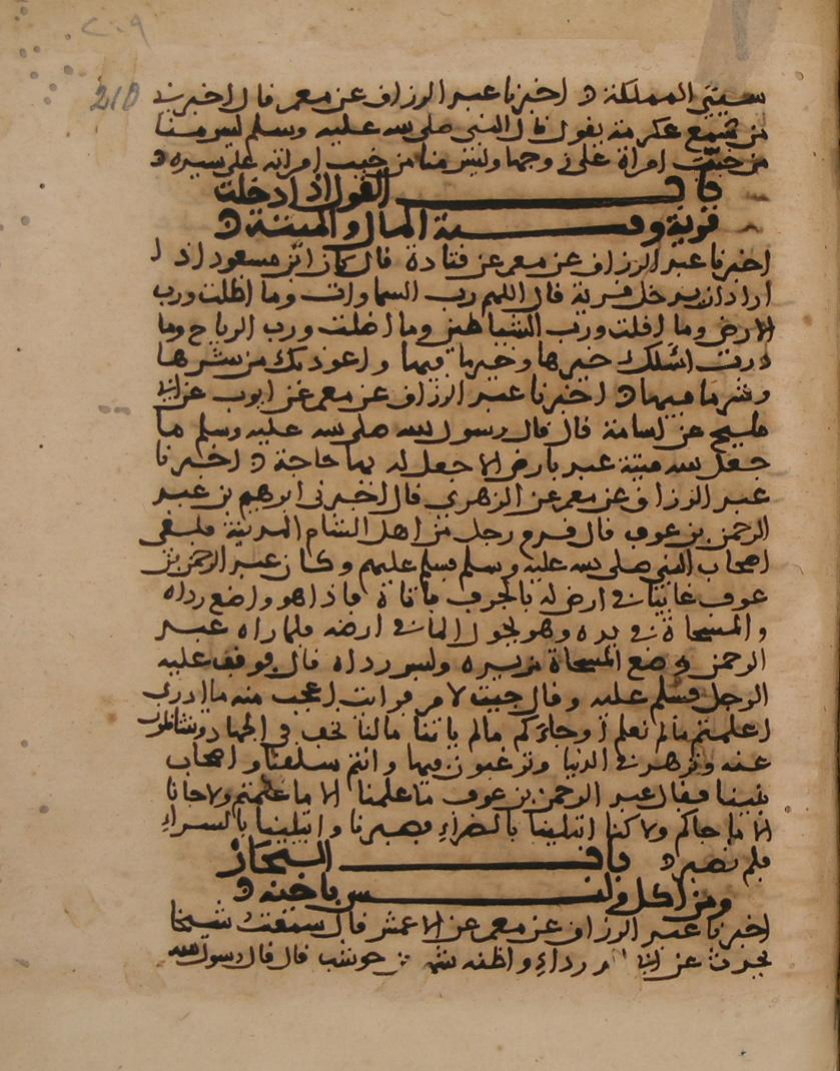 ٢٠٩
210
سيئ المملكة اخبرنا عبد الرزاق عن معمر قال اخبرني
من سمع عكرمة يقول قال النبي صلى الله عليه وسلم ليس منا
من خبب امراة على زوجها وليس منا من خبب امراته على سيده
باب القول اذا دخلت
قرية وفتنة المال والميتة
اخبرنا عبد الرزاق عن معمر عن قتادة قال كان ابن مسعود اذا
اراد ان يدخل قرية قال اللهم رب السماوات وما اظلت ورب
الارض وما اقلت ورب الشياطين وما اضلت ورب الرياح وما
ذرت اسلك خيرها وخير ما فيها واعوذ بك من شرها
وشر ما فيها اخبرنا عبد الرزاق عن معمر عن ايوب عن ابي
مليح عن اسامة قال قال رسول الله صلى الله عليه وسلم ما
جعل الله ميتة عبد بارض الا جعل له بها حاجة اخبرنا
عبد الرزاق عن معمر عن الزهري قال اخبرني ابرهيم بن عبد
الرحمن بن عوف قال قدم رجل من اهل الشام المدينة فلقي
اصحاب النبي صلى الله عليه وسلم فسلم عليهم وكان عبد الرحمن بن
عوف غايبا في ارض له بالجرف فاتاه فاذا هو واضع رداه
والمسحاة في يده وهو يحول الما في ارضه فلما راه عبد
الرحمن وضع المسحاة من يده ولبس رداه قال فوقف عليه
الرجل فسلم عليه وقال جيت لامر فرايت اعجب منه ما ادري
اعلمتم ما لم نعلم او جاءكم ما لم ياتنا ما لنا نخف في الجهاد وتتثاقلون
عنه ونزهد في الدنيا وترغبون فيها وانتم سلفنا واصحاب
نبينا فقال عبد الرحمن بن عوف ما علمنا الا ما علمتم ولا جانا
الا ما جاكم ولكنا ابتلينا بالضراء فصبرنا وابتلينا بالسراء
فلم نصبر باب
ومن اكل ولبس باخيه
اخبرنا عبد الرزاق عن معمر عن الاعمش قال سمعت شيخا
يحدث عن ابي رداء واظنه شهر بن حوشب قال قال رسول الله